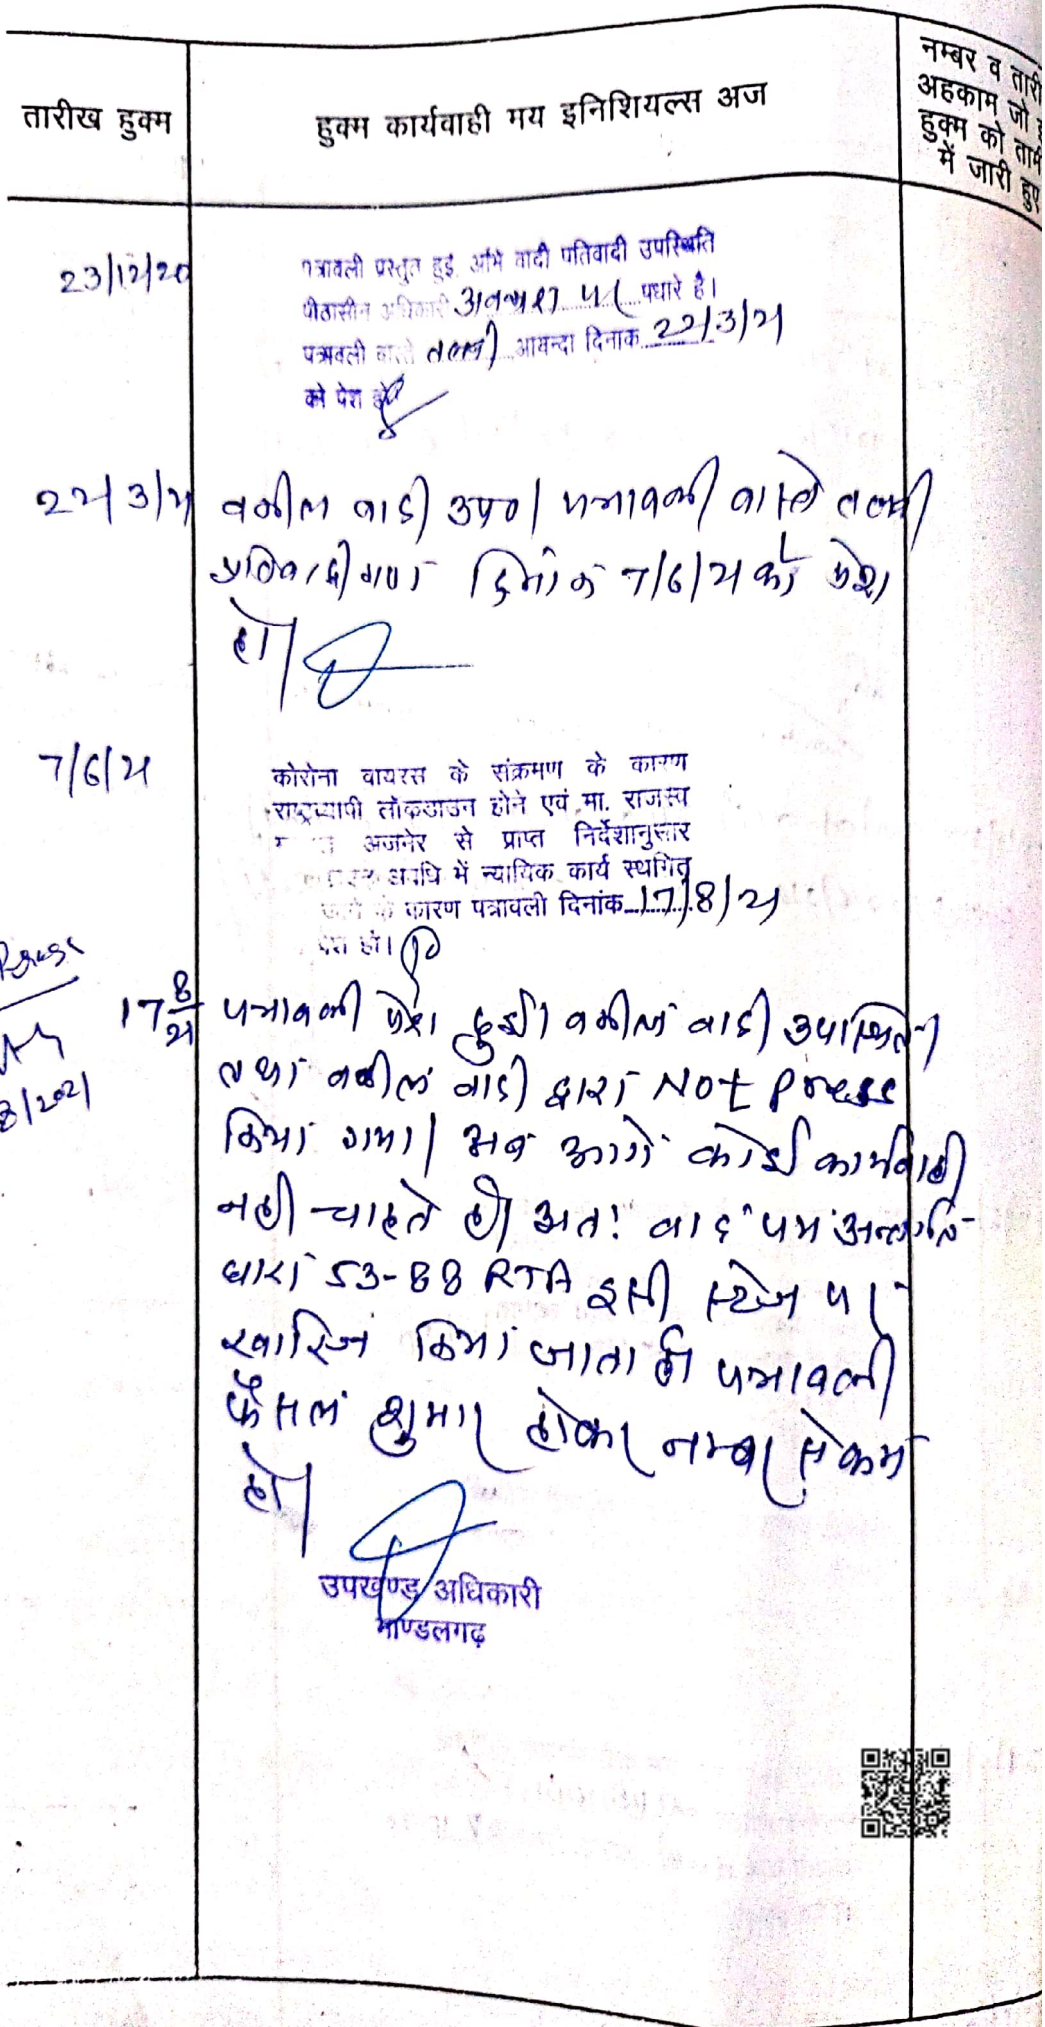 तारीख हुक्म
हुक्म कार्यवाही मय इनिशियल्स अज
नम्बर व तारी
अहकाम जो इ
हुक्म को ताम
में जारी हुए
23/12/20
पत्रावली प्रस्तुत हुई. अभि वादी पतिवादी उपस्थिति
पीठासीन अधिकारी अवकाश पर पधारे है।
पत्रावली वास्ते तलबी आयन्दा दिनाक 22/3/21
को पेश हो
22/3/21
वकील वादी उप0। पत्रावली वास्ते तलबी
प्रतिवादीगण दिनांक 7/6/21 को पेश
हो।
7/6/21
कोरोना वायरस के संक्रमण के कारण
राष्ट्रव्यापी लोकडाउन होने एवं मा. राजस्व
अजमेर से प्राप्त निर्देशानुसार
अवधि में न्यायिक कार्य स्थगित
के कारण पत्रावली दिनांक 17/8/21
पेश हो।
8/2021
17 8/21
पत्रावली पेश हुई। वकील वादी उपस्थित।
तथा वकील वादी द्वारा Not Press
किया गया। अब आगे कोई कार्यवाही
नही चाहते है। अत: वाद पत्र अन्तर्गत
धारा 53-88 RTA इसी स्टेज पर
खारिज किया जाता है। पत्रावली
फैसल शुमार होकर नम्बर से कम
हो।
उपखण्ड अधिकारी
माण्डलगढ़